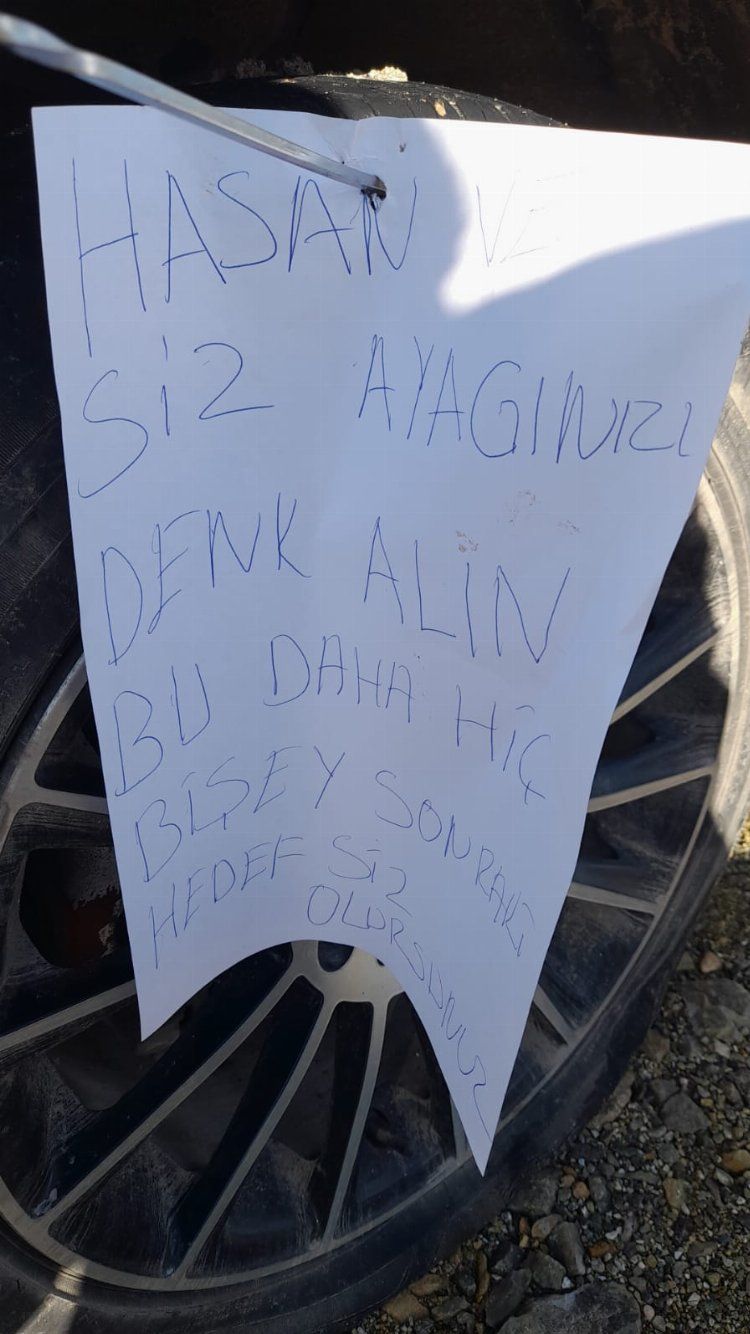 HASAN VE
SİZ AYAGINIZI
DENK ALIN
BU DAHA HİÇ
BİŞEY SONRAKİ
HEDEF SİZ
OLURSUNUZ